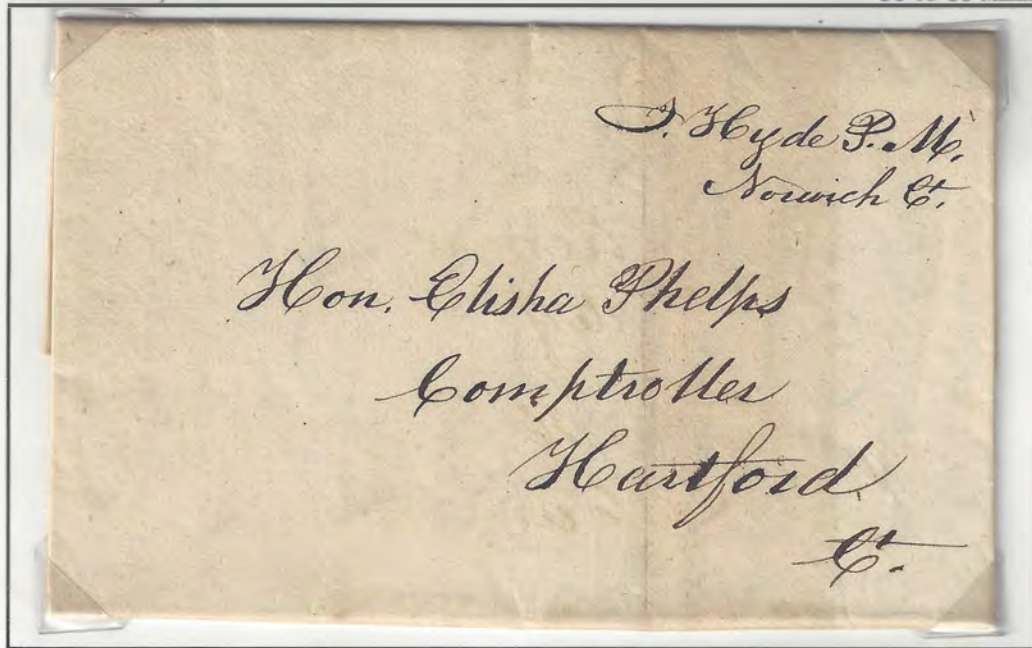 J. Hyde P. M.
Norwich Ct.
Hon. Elisha Phelps
Comptroller
Hartford
Ct.